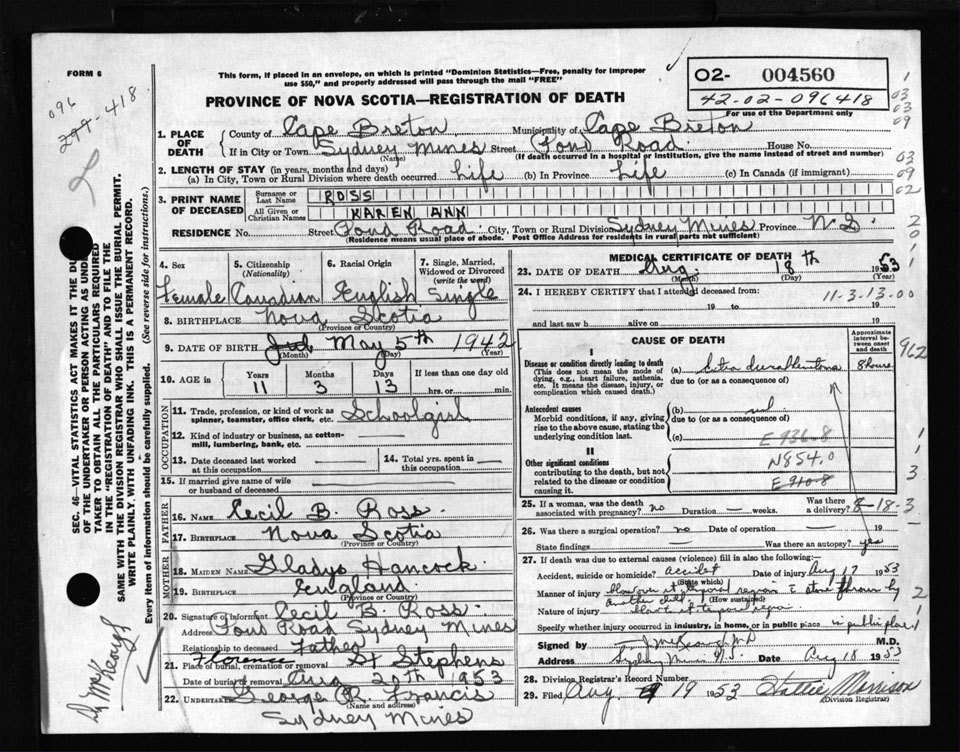 FORM 6
This form, if placed in an envelope, on which is printed "Dominion Statistics—Free, penalty for improper
use $50," and properly addressed will pass through the mail "FREE"
02- 004560
42-02-096418
For use of the Department only
PROVINCE OF NOVA SCOTIA—REGISTRATION OF DEATH
096
418
SEC. 46—VITAL STATISTICS ACT MAKES IT THE DU
OF THE UNDERTAKER OR PERSON ACTING AS UND
TAKER TO OBTAIN ALL THE PARTICULARS REQUIRED
IN THE "REGISTRATION OF DEATH" AND TO FILE THE
SAME WITH THE DIVISION REGISTRAR WHO SHALL ISSUE THE BURIAL PERMIT.
WRITE PLAINLY, WITH UNFADING INK. THIS IS A PERMANENT RECORD.
Every item of information should be carefully supplied. (See reverse side for instructions.)
1. PLACE OF DEATH
County of Cape Breton Municipality of Cape Breton
If in City or Town Sydney Mines Street Pond Road House No.
(Name) (If death occurred in a hospital or institution, give the name instead of street and number)
2. LENGTH OF STAY (in years, months and days)
(a) In City, Town or Rural Division where death occurred Life (b) In Province Life (c) In Canada (if immigrant)
3. PRINT NAME OF DECEASED
Surname or Last Name ROSS
All Given or Christian Names KAREN ANN
RESIDENCE No. Street Pond Road City, Town or Rural Division Sydney Mines Province N.S.
(Residence means usual place of abode. Post Office Address for residents in rural parts not sufficient)
4. Sex Female
5. Citizenship (Nationality) Canadian
6. Racial Origin English
7. Single, Married, Widowed or Divorced (write the word) Single
8. BIRTHPLACE Nova Scotia
(Province or Country)
9. DATE OF BIRTH May 5th 1942
(Month) (Day) (Year)
10. AGE in Years 11 Months 3 Days 3 If less than one day old
hrs. or min.
OCCUPATION
11. Trade, profession, or kind of work as
spinner, teamster, office clerk, etc. Schoolgirl
12. Kind of industry or business, as cotton-
mill, lumbering, bank, etc.
13. Date deceased last worked
at this occupation
14. Total yrs. spent in
this occupation
15. If married give name of wife
or husband of deceased
FATHER
16. NAME Cecil B. Ross
17. BIRTHPLACE Nova Scotia
(Province or Country)
MOTHER
18. MAIDEN NAME Gladys Hancock
19. BIRTHPLACE England
(Province or Country)
20. Signature of informant Cecil B Ross
Address Pond Road Sydney Mines
Relationship to deceased Father
Florence
21. Place of burial, cremation or removal St Stephens
Date of burial or removal Aug 20th 1953
22. UNDERTAKER George R. Francis
(Name and address)
Sydney Mines
MEDICAL CERTIFICATE OF DEATH
23. DATE OF DEATH Aug. 18th 1953
(Month) (Day) (Year)
24. I HEREBY CERTIFY that I attended deceased from: 11-3-13-00
19 to 19
and last saw h alive on 19
CAUSE OF DEATH
Approximate interval between onset and death
I
Disease or condition directly leading to death
(This does not mean the mode of
dying, e.g., heart failure, asthenia,
etc. It means the disease, injury, or
complication which caused death.)
(a) Extra dural hematoma 8 hours
due to (or as a consequence of)
Antecedent causes
Morbid conditions, if any, giving
rise to the above cause, stating the
underlying condition last.
(b) nil
due to (or as a consequence of)
(c) E936.8
II
Other significant conditions
contributing to the death, but not
related to the disease or condition
causing it.
N854.0
E910.8
962
25. If a woman, was the death
associated with pregnancy? no Duration — weeks. Was there a delivery?
8-18-3
26. Was there a surgical operation? no Date of operation — 19
State findings Was there an autopsy? yes
27. If death was due to external causes (violence) fill in also the following:—
Accident, suicide or homicide? accident Date of injury Aug 17 1953
(State which)
Manner of injury blow over temporal region stone thrown by
another child (How sustained)
Nature of injury
Specify whether injury occurred in industry, in home, or in public place in public place
Signed by M.D.
Address Sydney Mines N.S. Date Aug 18 1953
28. Division Registrar's Record Number
29. Filed Aug 19 1953 Hattie Morrison
(Division Registrar)